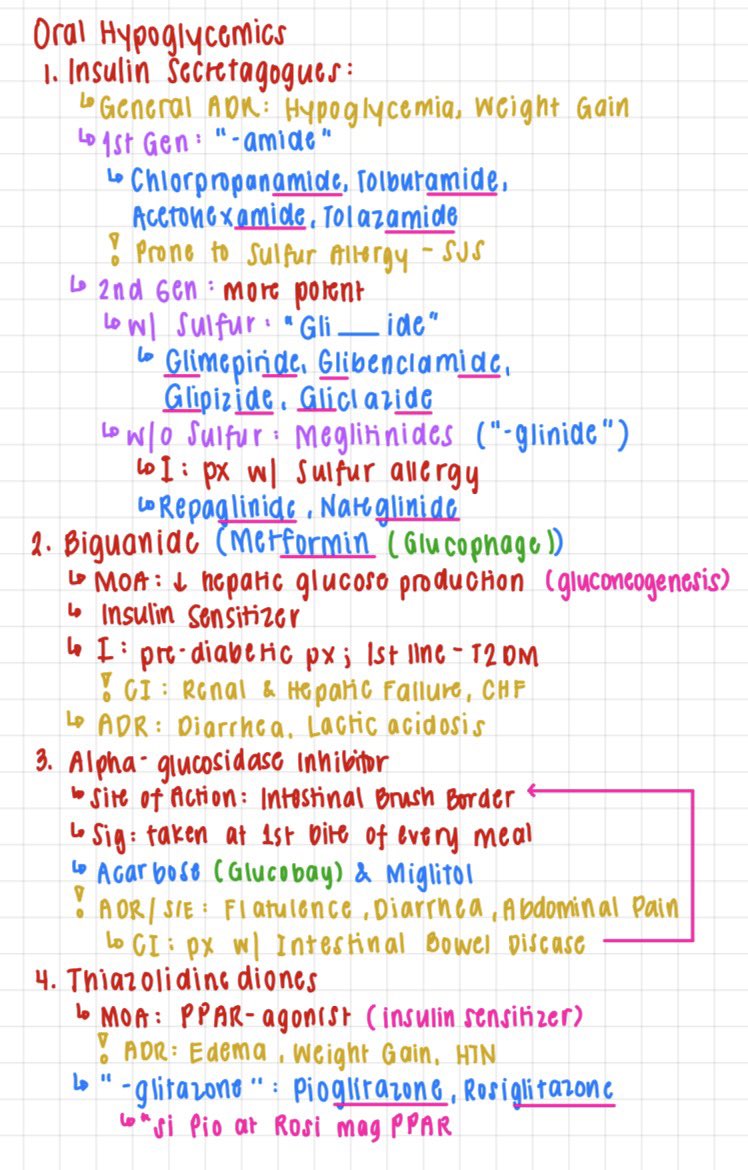 Oral Hypoglycemics
1. Insulin Secretagogues:
↳ General ADR: Hypoglycemia, Weight Gain
↳ 1st Gen: "-amide"
↳ Chlorpropanamide, Tolbutamide,
Acetohexamide, Tolazamide
! Prone to Sulfur Allergy - SJS
↳ 2nd Gen: more potent
↳ w/ Sulfur: "Gli___ide"
↳ Glimepiride, Glibenclamide,
Glipizide, Gliclazide
↳ w/o Sulfur: Meglitinides ("-glinide")
↳ I: px w/ sulfur allergy
↳ Repaglinide, Nateglinide
2. Biguanide (Metformin (Glucophage))
↳ MOA: ↓ hepatic glucose production (gluconeogenesis)
↳ Insulin Sensitizer
↳ I: pre-diabetic px; 1st line - T2DM
! CI: Renal & Hepatic Failure, CHF
↳ ADR: Diarrhea, Lactic acidosis
3. Alpha-glucosidase Inhibitor
↳ Site of Action: Intestinal Brush Border
↳ Sig: taken at 1st bite of every meal
↳ Acarbose (Glucobay) & Miglitol
! ADR/S/E: Flatulence, Diarrhea, Abdominal Pain
↳ CI: px w/ Intestinal Bowel Disease
4. Thiazolidinediones
↳ MOA: PPAR-agonist (insulin sensitizer)
! ADR: Edema, Weight Gain, HTN
↳ "-glitazone": Pioglitazone, Rosiglitazone
↳ *si Pio at Rosi mag PPAR